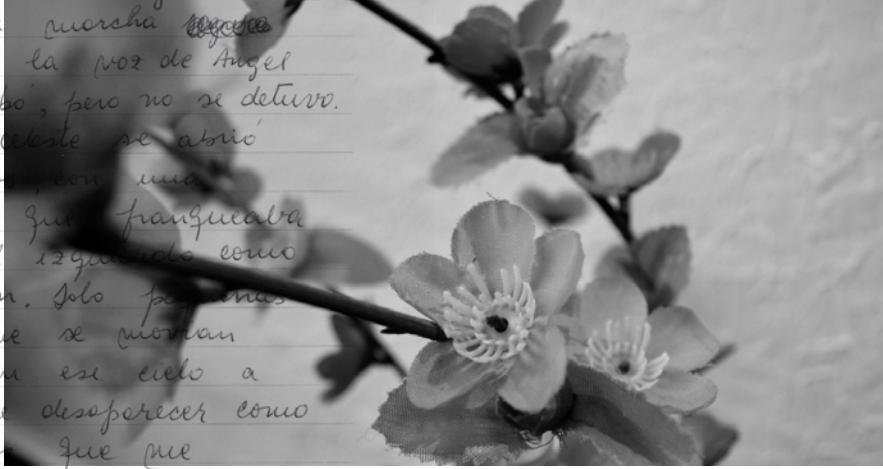 marcha
la voz de Angel
, pero no se detuvo.
celeste se abrió
, con una
que franqueaba
izquierdo como
. Solo pequeñas
se movían
ese cielo a
desaparecer como
que me